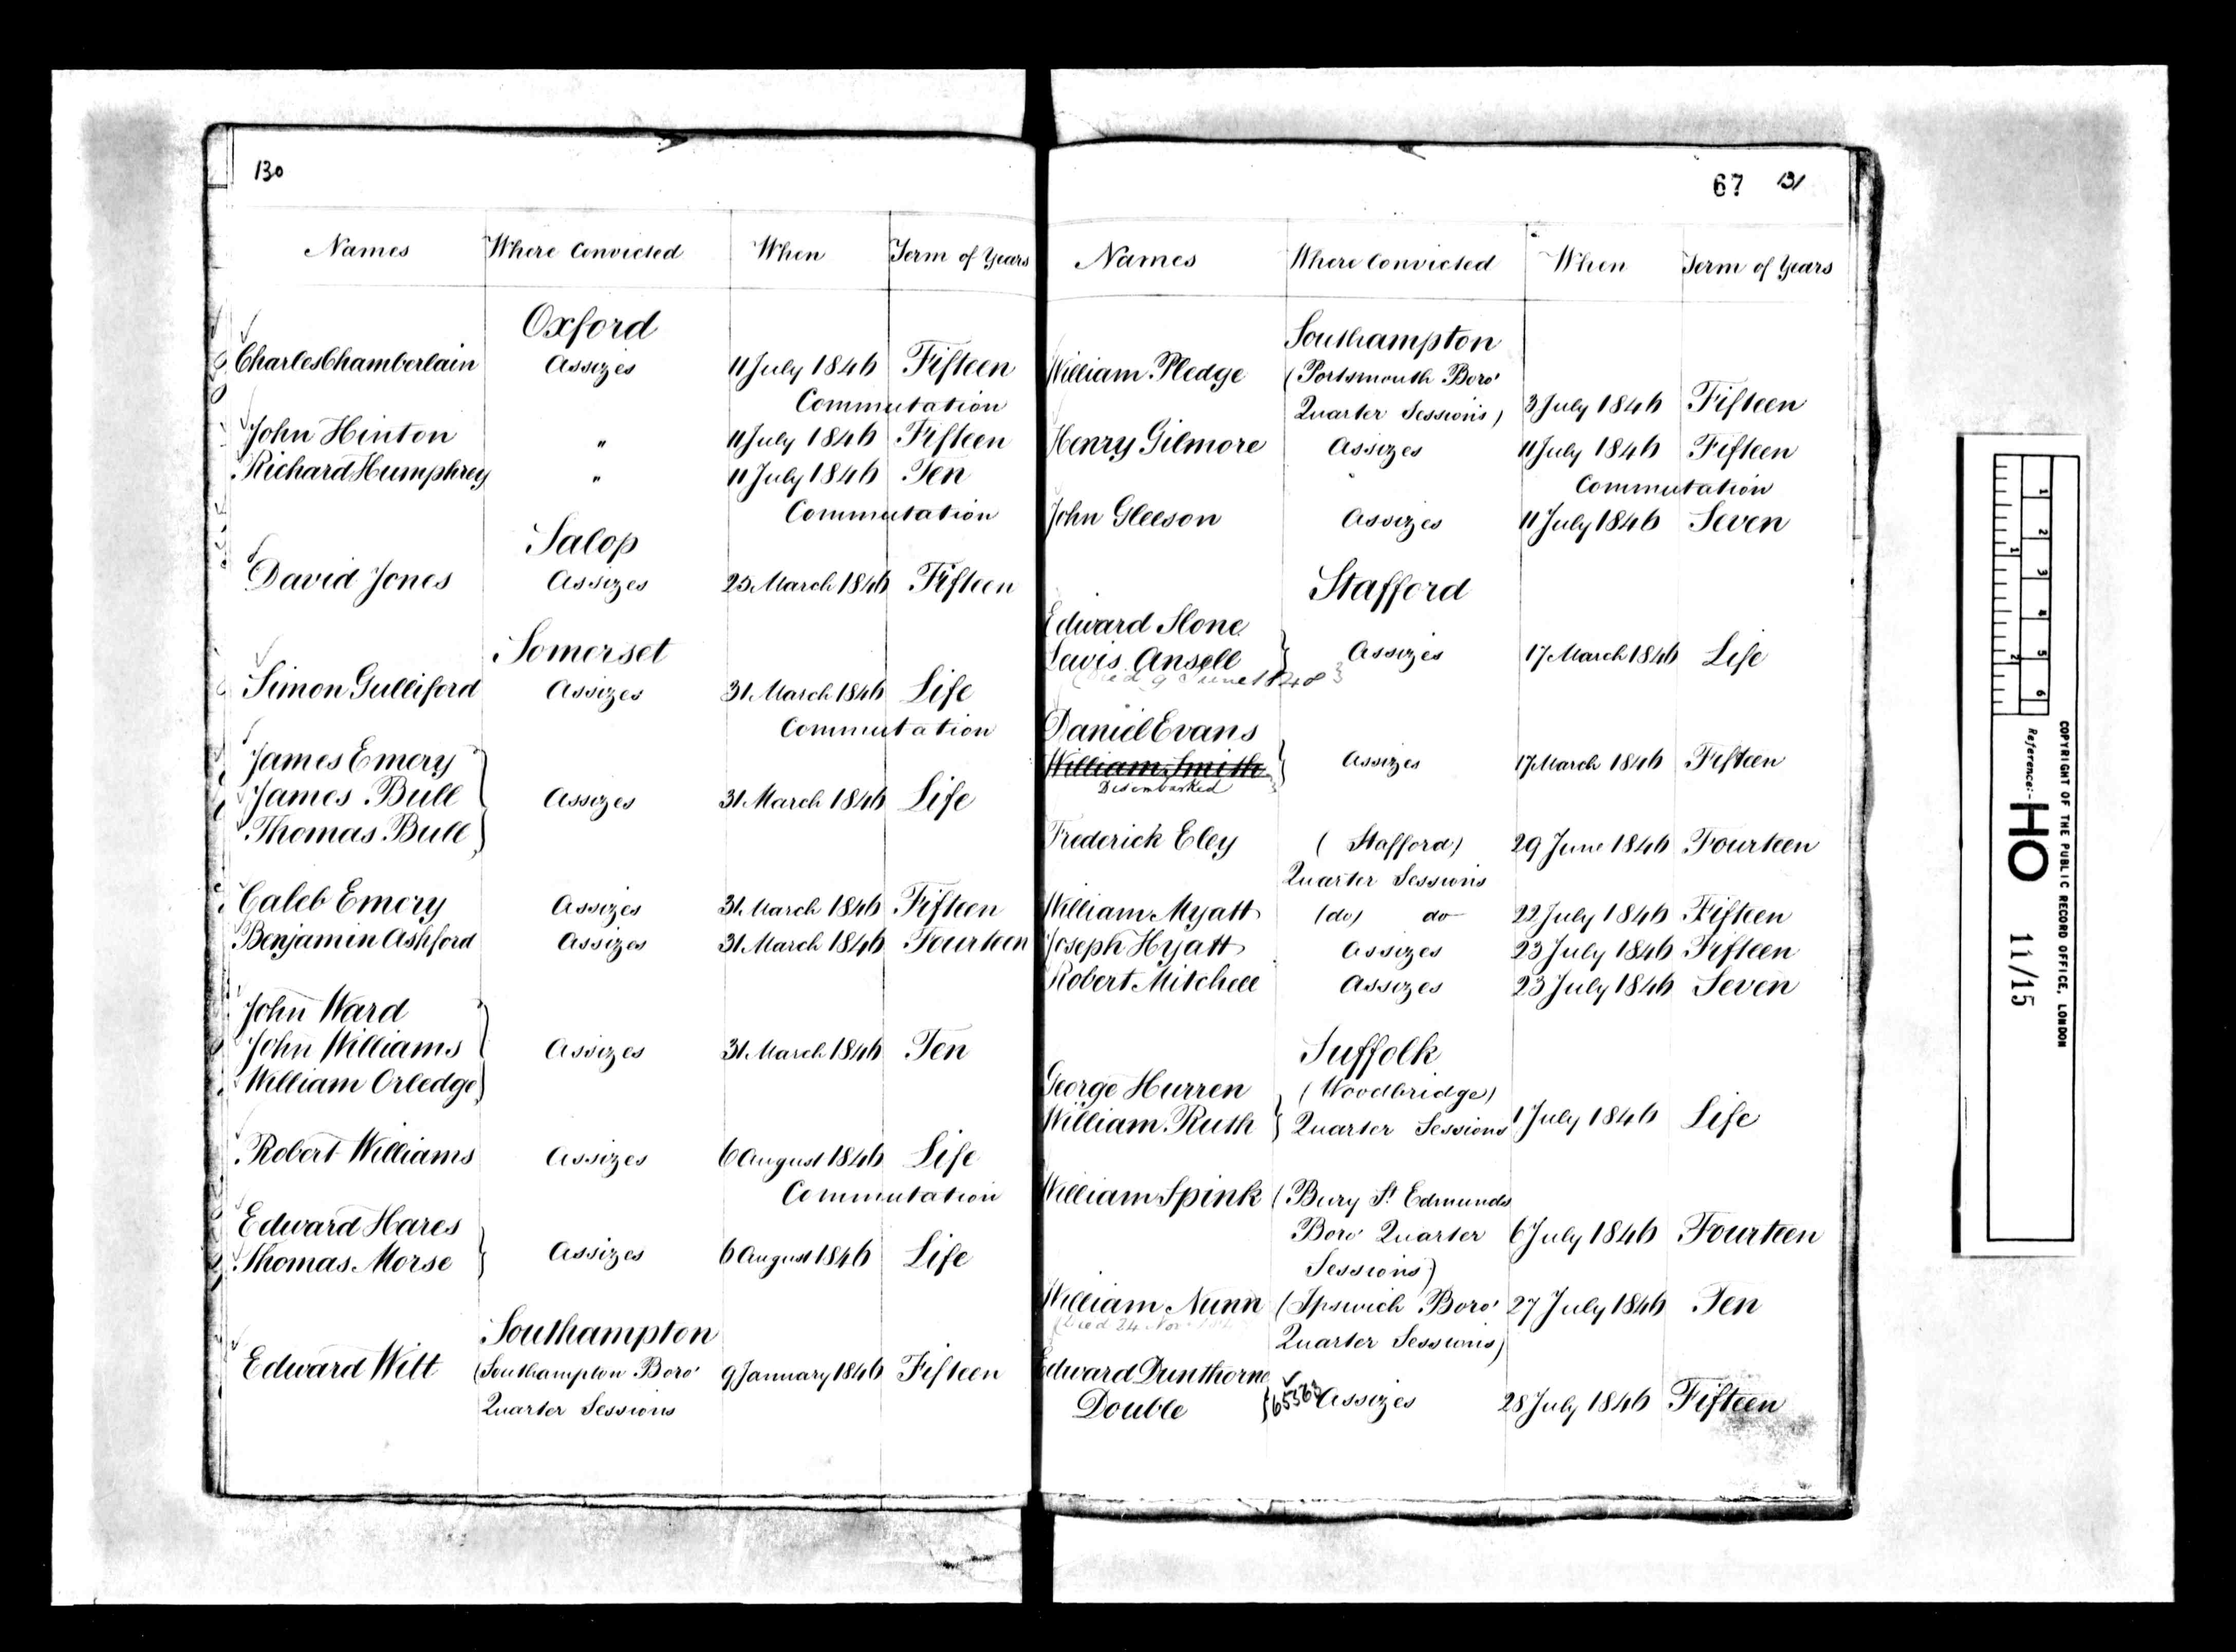 130
Names Where Convicted When Term of Years
Oxford
Charles Chamberlain Assizes 11 July 1846 Fifteen
Commutation
John Hinton " 11 July 1846 Fifteen
Richard Humphrey " 11 July 1846 Ten
Commutation
Salop
David Jones Assizes 25 March 1846 Fifteen
Somerset
Simon Gulliford Assizes 31 March 1846 Life
Commutation
James Emery
James Bull Assizes 31 March 1846 Life
Thomas Bull
Caleb Emery Assizes 31 March 1846 Fifteen
Benjamin Ashford Assizes 31 March 1846 Fourteen
John Ward
John Williams Assizes 31 March 1846 Ten
William Orledge
Robert Williams Assizes 6 August 1846 Life
Commutation
Edward Hares
Thomas Morse Assizes 6 August 1846 Life
Southampton
Edward Witt (Southampton Boro' 9 January 1846 Fifteen
Quarter Sessions
67 131
Names Where Convicted When Term of Years
Southampton
William Pledge (Portsmouth Boro'
Quarter Sessions) 3 July 1846 Fifteen
Henry Gilmore Assizes 11 July 1846 Fifteen
Commutation
John Gleeson Assizes 11 July 1846 Seven
Stafford
Edward Slone
Lewis Ansell Assizes 17 March 1846 Life
(Died 9 June 1848)
Daniel Evans
William Smith Assizes 17 March 1846 Fifteen
Disembarked
Frederick Eley (Stafford) 29 June 1846 Fourteen
Quarter Sessions
William Myatt (do) do 22 July 1846 Fifteen
Joseph Hyatt Assizes 23 July 1846 Fifteen
Robert Mitchell Assizes 23 July 1846 Seven
Suffolk
George Hurren (Woodbridge)
William Ruth Quarter Sessions 1 July 1846 Life
William Spink (Bury St Edmunds
Boro' Quarter 6 July 1846 Fourteen
Sessions)
William Nunn (Ipswich Boro' 27 July 1846 Ten
(Died 24 Nov
Quarter Sessions)
Edward Dunthorne
Double 65363 Assizes 28 July 1846 Fifteen
1 2 3 4 5 6
1 2
COPYRIGHT OF THE PUBLIC RECORD OFFICE, LONDON
Reference:-
HO 11/15